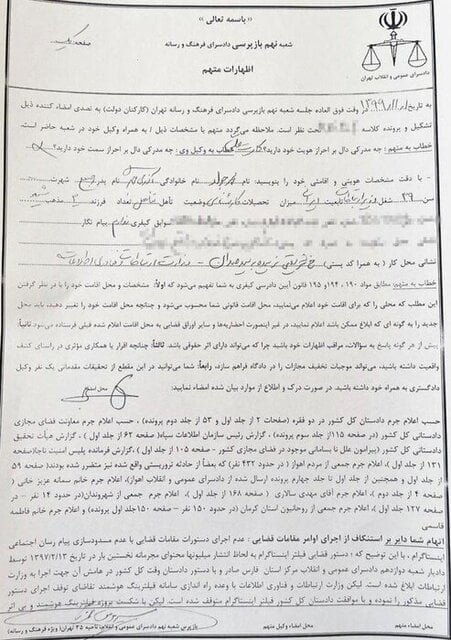 « باسمه تعالی »
شعبه نهم بازپرسی دادسرای فرهنگ و رسانه
صفحه: یک
اظهارات متهم
دادسرای عمومی و انقلاب تهران
به تاریخ ۱۳۹۹/ وقت فوق العاده جلسه شعبه نهم بازپرسی دادسرای فرهنگ و رسانه تهران (کارکنان دولت) به تصدی امضاء کننده ذیل
تشکیل و پرونده کلاسه تحت نظر است. ملاحظه می‌گردد متهم با مشخصات ذیل / به همراه وکیل خود در شعبه حاضر است.
خطاب به متهم: چه مدرکی دال بر احراز هویت خود دارید؟ خطاب به وکیل وی: چه مدرکی دال بر احراز سمت خود دارید؟
- با دقت مشخصات هویتی و اقامتی خود را بنویسید: نام نام خانوادگی نام پدر شهرت
سن ۳۹ شغل وزیر ارتباطات تابعیت ایران میزان تحصیلات وضعیت تأهل تعداد فرزند ۲ مذهب
سوابق کیفری ندارم پیام نگار
نشانی محل کار ( به همرا کد پستی) خ شریعتی وزارت ارتباطات و فناوری اطلاعات
خطاب به متهم: مطابق مواد ۱۹۰ ، ۱۹۴ و ۱۹۵ قانون آیین دادرسی کیفری به شما تفهیم می‌شود که اولاً: مشخصات و محل اقامت خود را با در نظر گرفتن
این مطلب که محلی را که برای اقامت خود اعلام می‌نمایید، محل اقامت قانونی شما محسوب می‌شود و چنانچه محل اقامت خود را تغییر دهید باید محل
جدید را به گونه ای که ابلاغ ممکن باشد اعلام نمایید، در غیر اینصورت احضاریه‌ها و سایر اوراق قضایی به محل اقامت اعلام شده قبلی فرستاده می‌شود ثانیاً:
پیش از هر گونه پاسخ به سؤالات، مراقب اظهارات خود باشید چرا که می‌تواند دارای اثر حقوقی باشد. ثالثاً: چنانچه اقرار یا همکاری مؤثری در راستای کشف
واقعیت داشته باشید، می‌تواند موجبات تخفیف مجازات را در دادگاه فراهم سازد، رابعاً: شما می‌توانید در این مقطع از تحقیقات مقدماتی یک نفر وکیل
دادگستری به همراه خود داشته باشید. در صورت درک و اطلاع از موارد بیان شده امضاء نمایید:
محل امضاء
حسب اعلام جرم دادستان کل کشور در دو فقره (صفحات ۲ از جلد اول و ۵۳ از جلد دوم پرونده) ، حسب اعلام جرم معاونت فضای مجازی
دادستانی کل کشور (در صفحه ۱۱۵ از جلد سوم پرونده) ، گزارش رئیس سازمان اطلاعات سپاه( صفحه ۶۲ از جلد اول) ، گزارش هیأت تحقیق
دادستانی کل کشور (پیرامون علل نا بسامانی موجود در فضای مجازی کشور - صفحه ۱۰۵ از جلد اول) ، گزارش فرمانده پلیس امنیت ناجا(صفحه
۱۳۱ از جلد اول)، اعلام جرم جمعی از مردم اهواز ( در حدود ۴۳۲ نفر) که بعضاً از حادثه تروریستی واقع شده نیز متضرر شده بودند( صفحه ۵۹
از جلد اول و همچنین از جلد اول تا جلد چهارم پرونده ارسال شده از دادسرای عمومی و انقلاب اهواز)، اعلام جرم خانم سمانه عزیز خانی (
صفحه ۴ از جلد دوم)، اعلام جرم آقای مهدی سالاری ( صفحه ۱۶۸ از جلد اول)، اعلام جرم جمعی از شهروندان(در حدود ۱۴ نفر - در
صفحه ۱۲۷ جلد اول)، اعلام جرم جمعی از روحانیون استان کرمان (در حدود ۱۵۰ نفر - صفحه ۱۵۰جلد اول پرونده) و اعلام جرم خانم فاطمه
قاسمی
اتهام شما دایر بر استنکاف از اجرای اوامر مقامات قضایی : عدم اجرای دستورات مقامات قضایی با عدم مسدودسازی پیام رسان اجتماعی
اینستاگرام ، با این توضیح که : دستور قضایی فیلتر اینستاگرام به لحاظ انتشار میلیونها محتوای مجرمانه نخستین بار در تاریخ ۱۳۹۷/۲/۱۳ توسط
دادیار شعبه دوازدهم دادسرای عمومی و انقلاب مرکز استان فارس صادر و با دستور دادستان وقت کل کشور در هامش آن جهت اجرا به وزارت
ارتباطات ابلاغ شده است. لیکن وزارت ارتباطات و فناوری اطلاعات با وعده راه اندازی سامانه فیلترینگ هوشمند تقاضای توقف اجرای دستور
قضایی مذکور را نموده و با موافقت دادستان کل کشور فیلتر اینستاگرام متوقف شده است. لیکن با شکست پروژه فیلترینگ هوشمند و بی اثر
محل امضاء متهم
محل امضاء وکیل متهم
بازپرس شعبه نهم دادسرای عمومی و انقلاب ناحیه ۳۵ تهران (ویژه فرهنگ و رسانه)